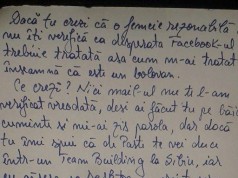 Dacă tu crezi că o femeie rezonabilă
nu îți verifică ca disperata Facebook-ul
trebuie tratată așa cum m-ai tratat
înseamnă că ești un bolovan.
Ce crezi? Nici mail-ul nu te l-am
verificat vreodată, deși ai făcut pe băi
cuminte și mi-ai zis parola, dar dacă
tu îmi spui că de Paște te vei duce
într-un Team Building la Sibiu, iar